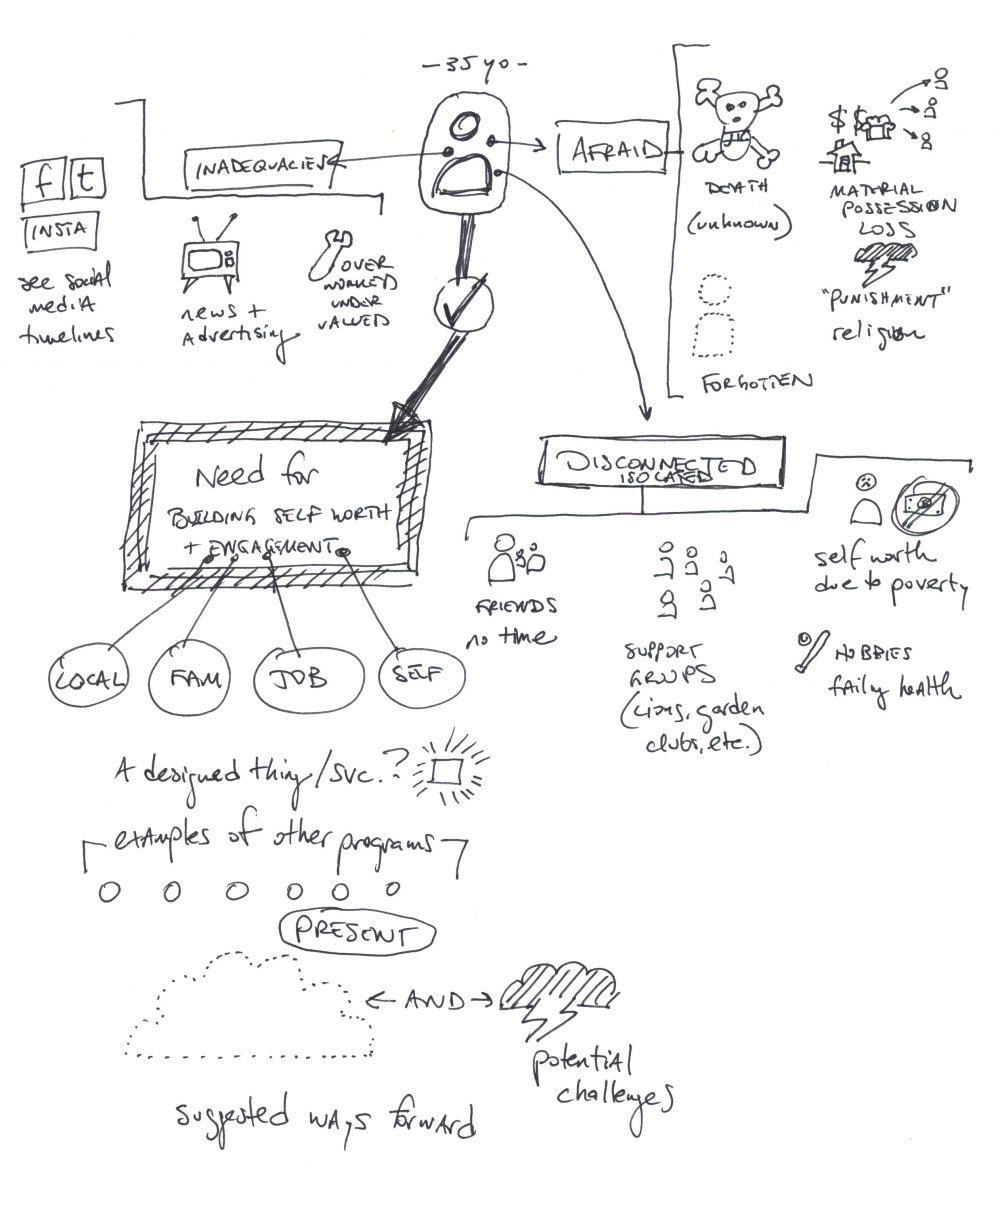 - 35 yo -
INADEQUACIES
AFRAID
f t
INSTA
see social
media
timelines
news +
Advertising
OVER
WORKED
UNDER
VALUED
DEATH
(unknown)
$ $
MATERIAL
POSSESSION
LOSS
"PUNISHMENT"
religion
FORGOTTEN
Need for
BUILDING SELF WORTH
+ ENGAGEMENT
LOCAL
FAM
JOB
SELF
DISCONNECTED
ISOLATED
FRIENDS
no time
SUPPORT
GROUPS
(Lions, garden
clubs, etc.)
self worth
due to poverty
HOBBIES
faily health
A designed thing/svc.?
examples of other programs
PRESENT
← AND →
potential
challenges
suggested ways forward